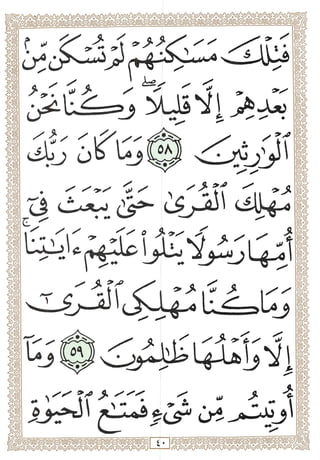 فَتِلْكَ مَسَٰكِنُهُمْ لَمْ تُسْكَن مِّنۢ
بَعْدِهِمْ إِلَّا قَلِيلًاۖ وَكُنَّا نَحْنُ
ٱلْوَٰرِثِينَ ٥٨ وَمَا كَانَ رَبُّكَ
مُهْلِكَ ٱلْقُرَىٰ حَتَّىٰ يَبْعَثَ فِىٓ
أُمِّهَا رَسُولًا يَتْلُوا۟ عَلَيْهِمْ ءَايَٰتِنَاۚ
وَمَا كُنَّا مُهْلِكِى ٱلْقُرَىٰٓ
إِلَّا وَأَهْلُهَا ظَٰلِمُونَ ٥٩ وَمَآ
أُوتِيتُم مِّن شَىْءٍ فَمَتَٰعُ ٱلْحَيَوٰةِ
٤٠